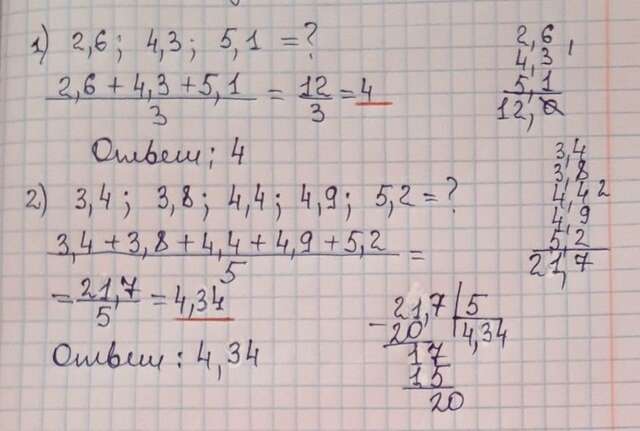 1) 2,6; 4,3; 5,1 = ?
2,6 + 4,3 + 5,1 / 3 = 12/3 = 4
2,6
4,3
5,1
12,0
Ответ: 4
2) 3,4; 3,8; 4,4; 4,9; 5,2 = ?
3,4 + 3,8 + 4,4 + 4,9 + 5,2 / 5 =
= 21,7/5 = 4,34
3,4
3,8
4,4 2
4,9
5,2
21,7
Ответ: 4,34
21,7 | 5
- 20 | 4,34
17
15
20